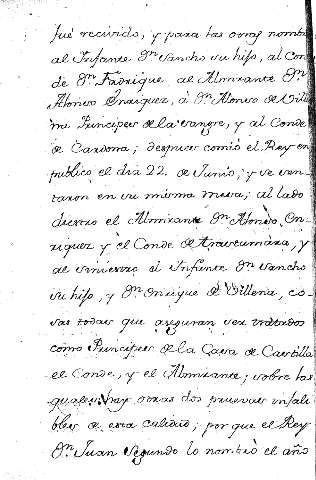 fué recivido, y para las otras nombró
al Infante Dn. Sancho su hijo, al Con
de Dn. Fadrique al Almirante Dn.
Alonso Enriquez, á Dn. Alonso de Ville
na Principes de la Sangre, y al Conde
de Cardona; despues comió el Rey en
publico el dia 22 de Junio; y se sen-
taron en su misma mesa; al lado
diestro el Almirante Dn. Alonso En-
riquez y el Conde de Trastamara, y
al siniestro el Infante Dn. Sancho
su hijo, y Dn. Enrique de Villena, co-
sas todas que aseguran ser tratados
como Principes de la Casa de Castilla
el Conde, y el Almirante; sobre las
quales hay otras dos pruevas infali-
bles de esta calidad; por que el Rey
Dn. Juan Segundo lo nombró el año